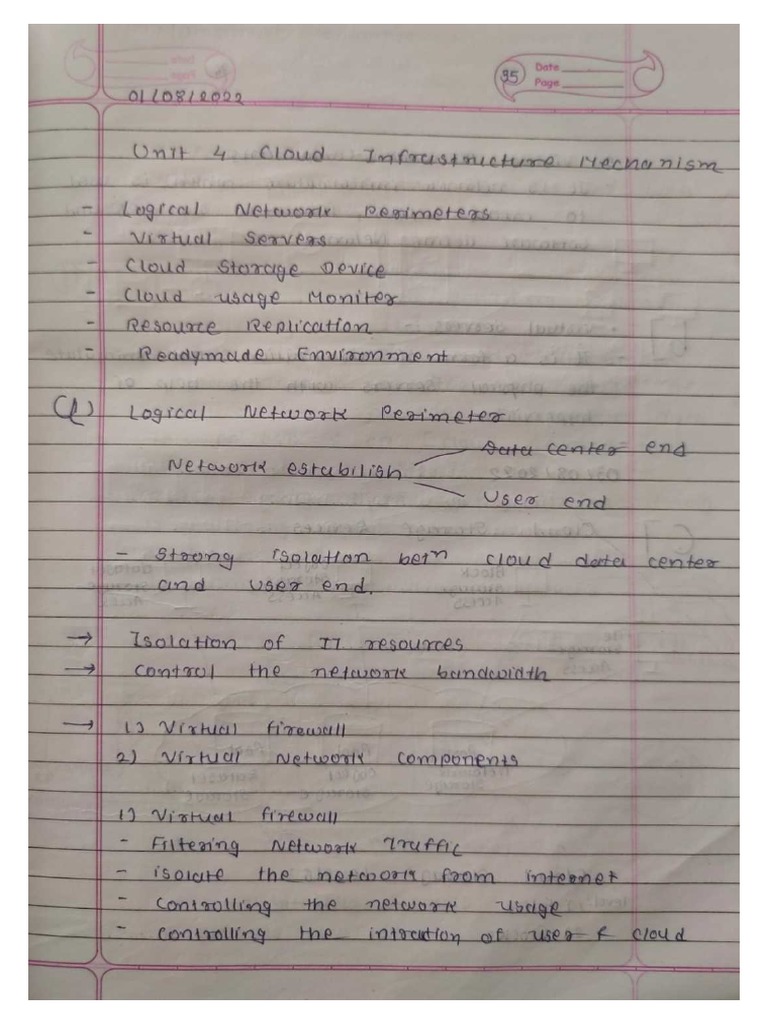 35
Date
Page
01/08/2022
Unit 4 Cloud Infrastructure Mechanism
- Logical Network Perimeters
- Virtual Servers
- Cloud Storage Device
- Cloud usage Moniter
- Resource Replication
- Readymade Environment
Logical Network Perimeter
Data center end
Network estabilish
User end
- Strong isolation betn cloud data center
and user end.
→ Isolation of IT resources
→ control the network bandwidth
→ 1) Virtual firewall
2) Virtual Network components
1) Virtual firewall
- Filtering Network Traffic
- isolate the network from internet
- controlling the network usage
- controlling the intraction of user & cloud